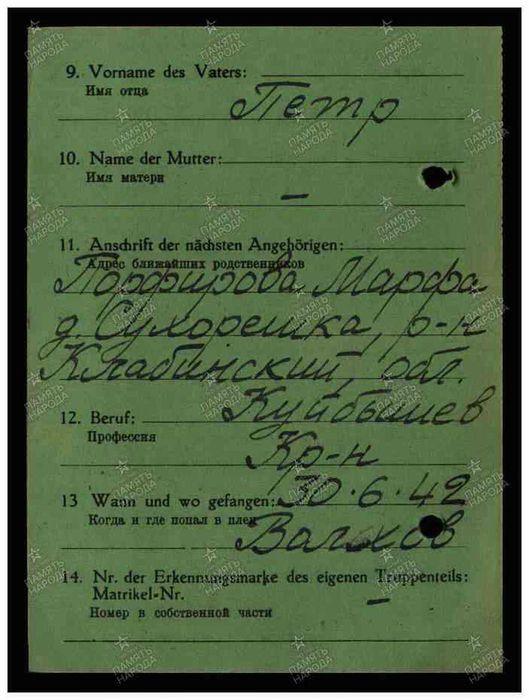 9. Vorname des Vaters:
Имя отца
Петр
10. Name der Mutter:
Имя матери
–
11. Anschrift der nächsten Angehörigen:
Адрес ближайших родственников
Порфирова Марфа
д. Сухорешка, р-н
Клабинский, обл.
Куйбышев
12. Beruf:
Профессия
Кр-н
13 Wann und wo gefangen: 30.6.42
Когда и где попал в плен
Валхов
14. Nr. der Erkennungsmarke des eigenen Truppenteils:
Matrikel-Nr. –
Номер в собственной части
ПАМЯТЬ НАРОДА